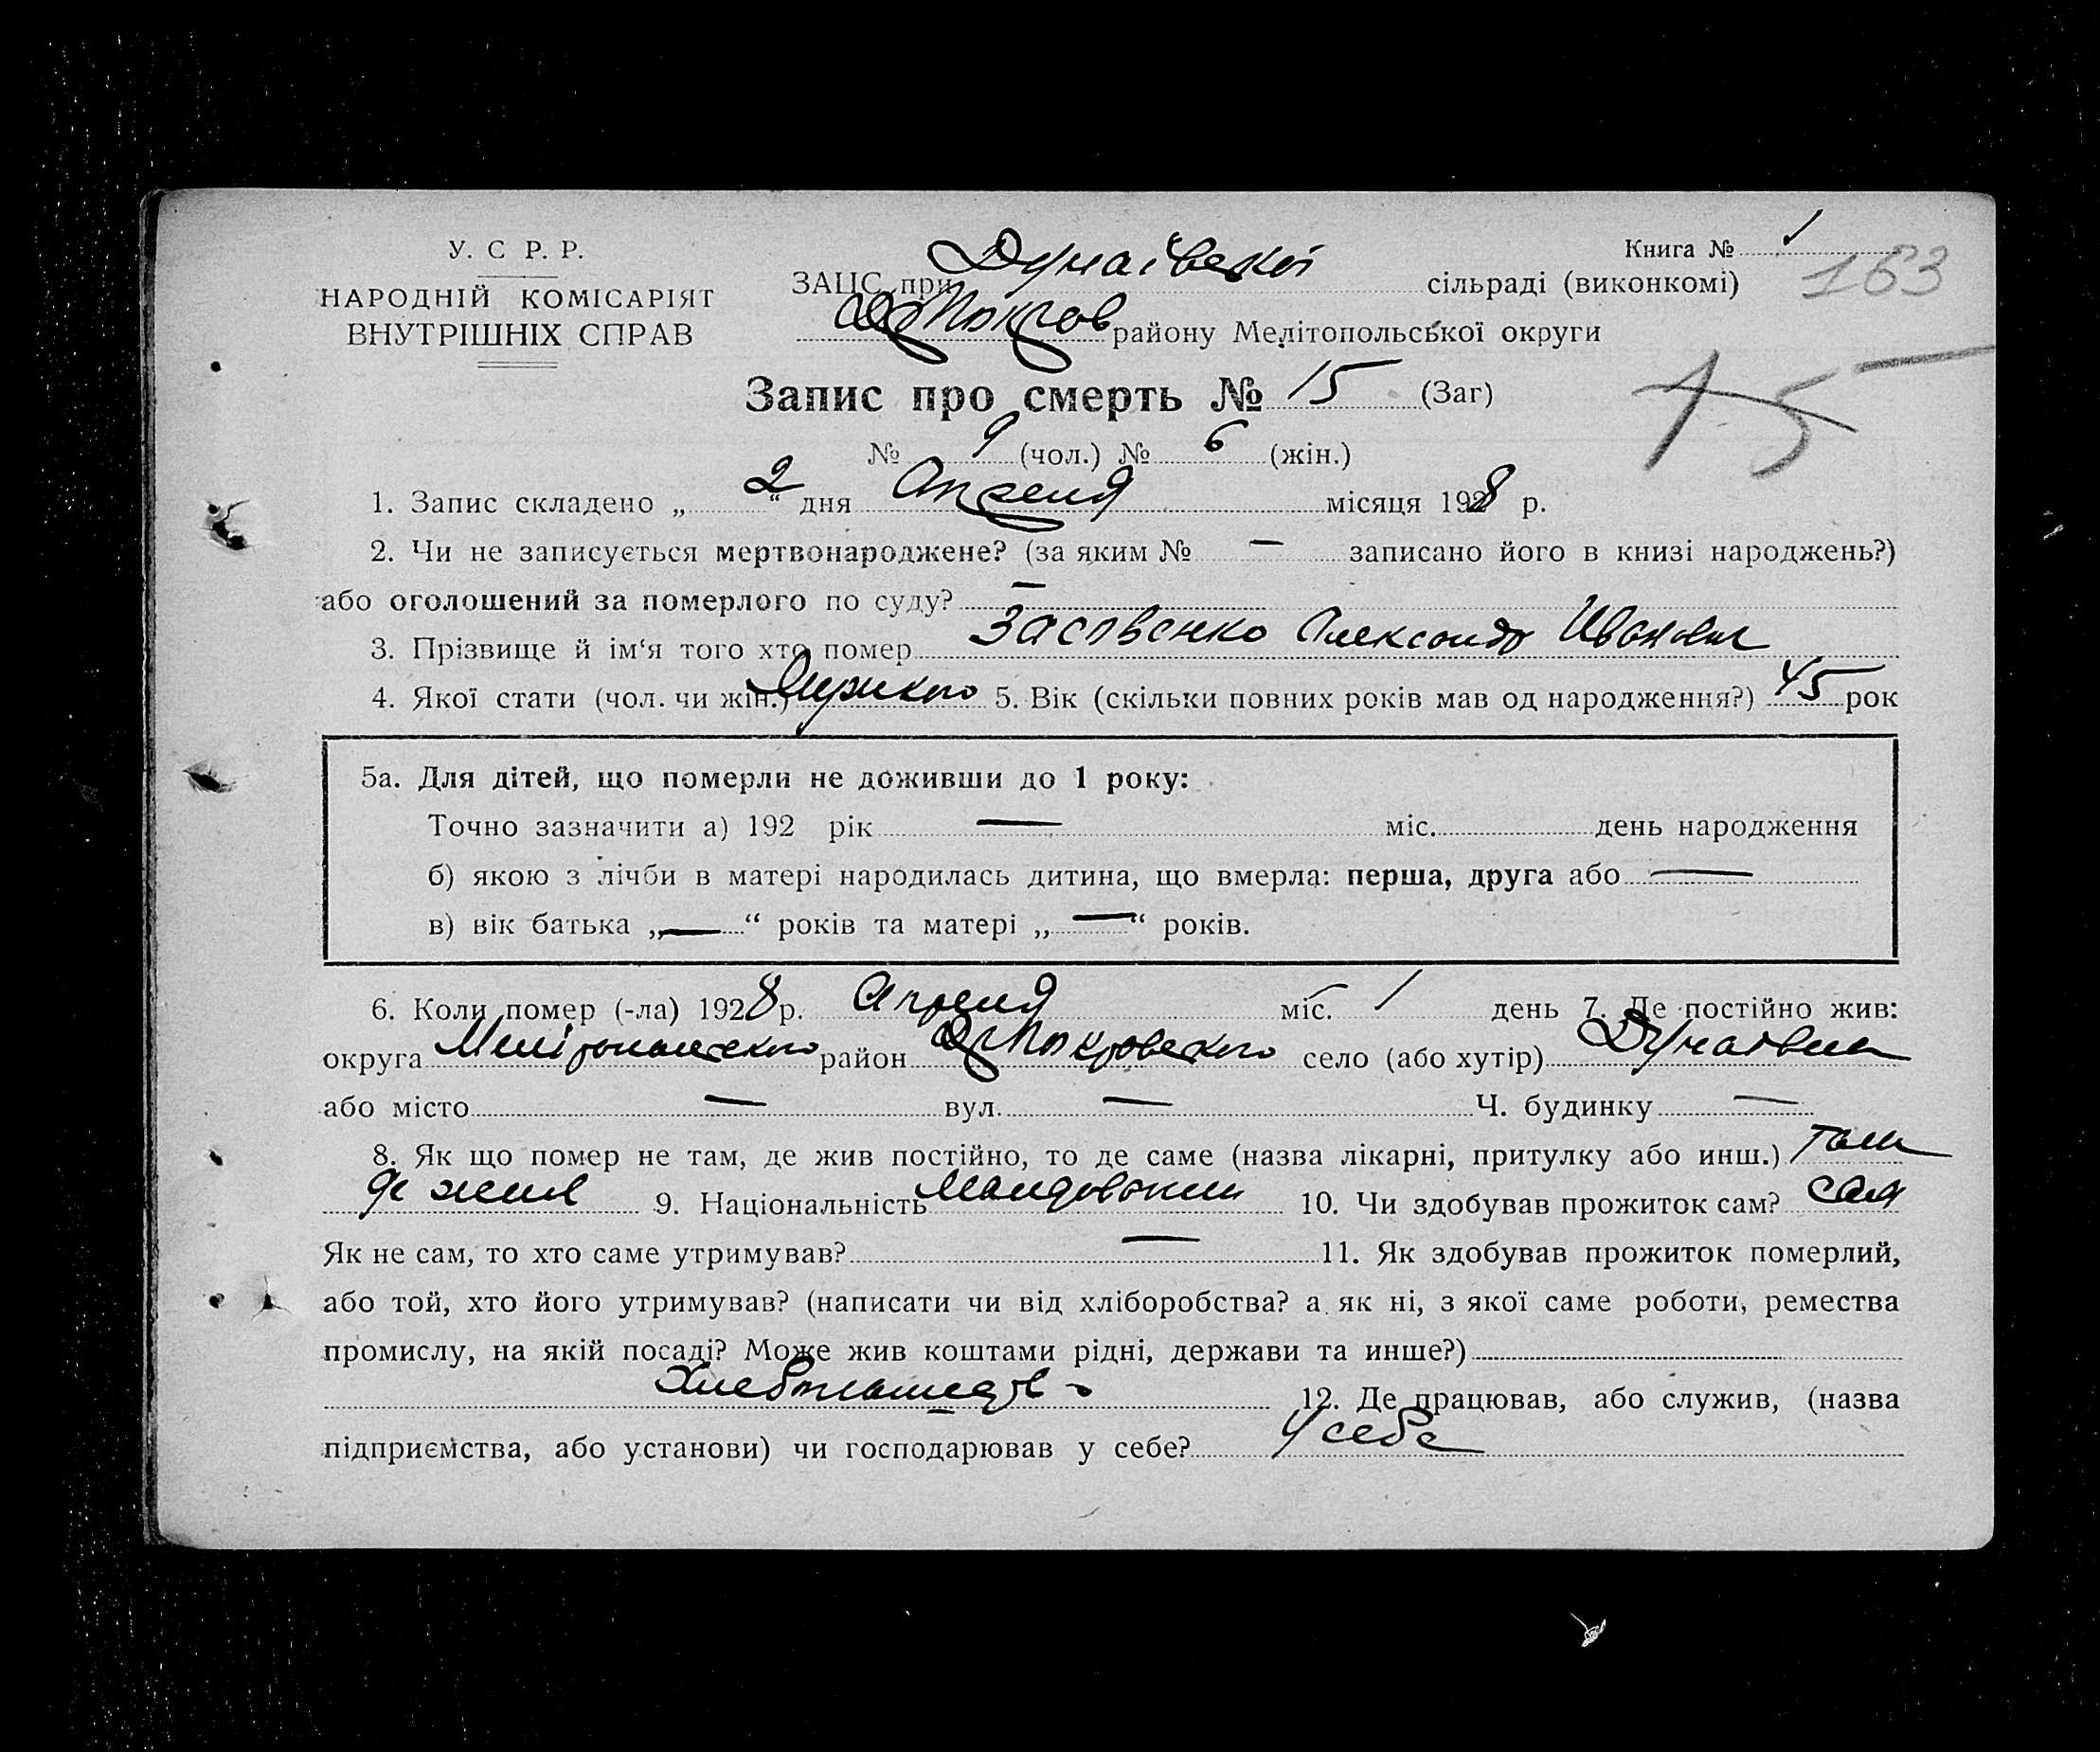 У. С Р. Р.
НАРОДНІЙ КОМІСАРІЯТ
ВНУТРІШНІХ СПРАВ
Книга № 1
163
ЗАЦС при Дунаівскоі сільраді (виконкомі)
району Мелітопольської округи
Запис про смерть № 15 (Заг)
15
№ 9 (чол.) № 6 (жін.)
1. Запис складено „ 2 “ дня Апреля місяця 1928 р.
2. Чи не записується мертвонароджене? (за яким № — записано його в книзі народжень?)
або оголошений за померлого по суду? —
3. Прізвище й ім‘я того хто помер Александр Иванович
4. Якої стати (чол. чи жін.) 5. Вік (скільки повних років мав од народження?) 45 рок
5а. Для дітей, що померли не доживши до 1 року:
Точно зазначити а) 192 рік — міс. день народження
б) якою з лічби в матері народилась дитина, що вмерла: перша, друга або —
в) вік батька „—“ років та матері „—“ років.
6. Коли помер (-ла) 1928 р. Апреля міс. 1 день 7. Де постійно жив:
округа район село (або хутір)
або місто — вул. — Ч. будинку —
8. Як що помер не там, де жив постійно, то де саме (назва лікарні, притулку або инш.) там
де жив 9. Національність 10. Чи здобував прожиток сам? сам
Як не сам, то хто саме утримував? — 11. Як здобував прожиток померлий,
або той, хто його утримував? (написати чи від хліборобства? а як ні, з якої саме роботи, ремества
промислу, на якій посаді? Може жив коштами рідні, держави та инше?)
12. Де працював, або служив, (назва
підприємства, або установи) чи господарював у себе? У себе